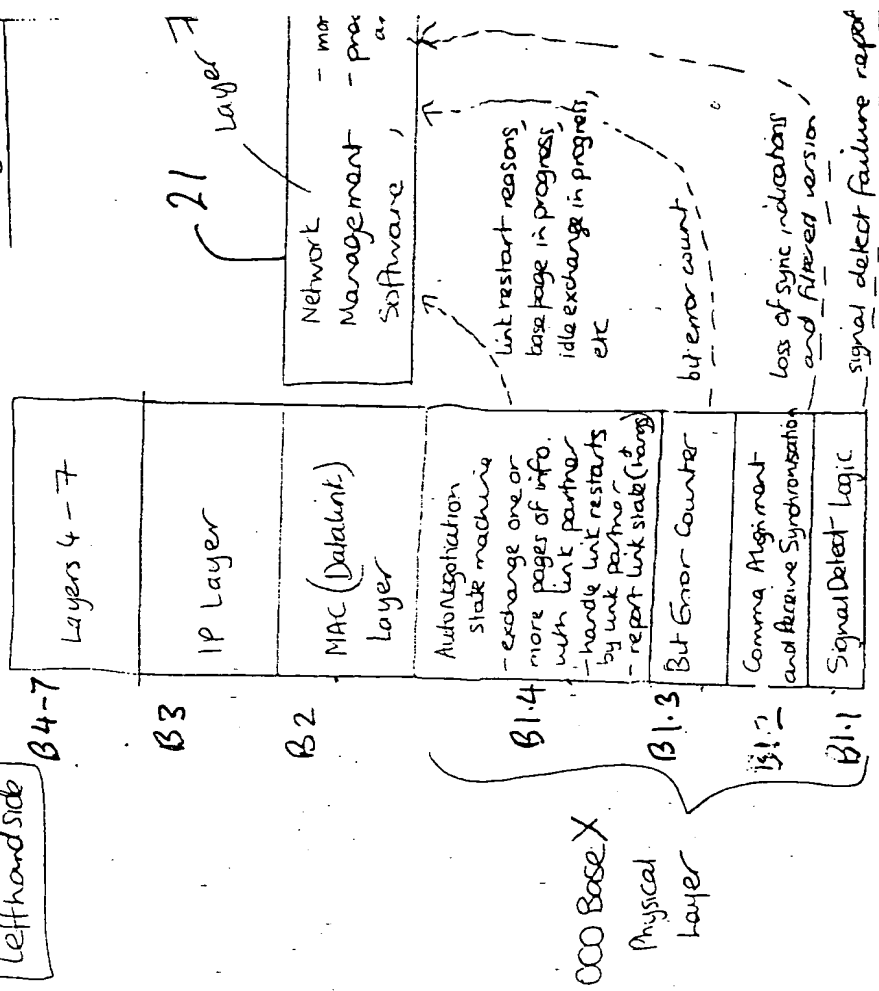 Lefthand side
B4-7
Layers 4-7
B3
IP Layer
B2
MAC (Datalink)
Layer
B1.4
AutoNegotiation
state machine
- exchange one or
more pages of info.
with link partner
- handle link restarts
by link partner
- report link state (+
B1.3
Bit Error Counter
B1.2
Comma Alignment
and Receive Synchronisation
B1.1
Signal Detect Logic
000 Base X
Physical
Layer
21
Layer 7
Network
Management
Software
- mor
- proc
link restart reasons,
base page in progress,
idle exchange in progress,
etc
bit error count
Loss of sync indications
and filtered version
signal detect failure report